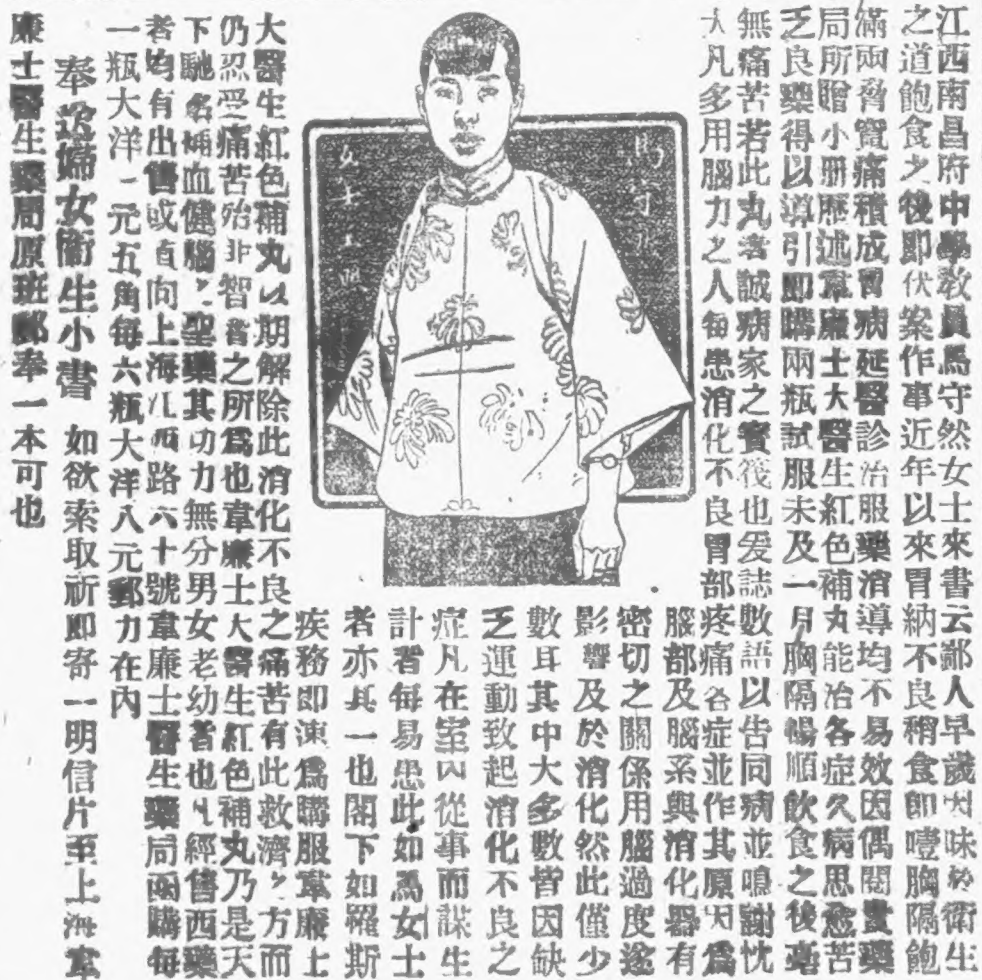 江西南昌府中學教員馬守然女士來書云鄙人早歲因昧於衛生
之道飽食之後即伏案作事近年以來胃納不良稍食卽噎胸隔飽
滿兩脅竄痛積成胃病延醫診治服藥消導均不易效因偶閱貴藥
局所贈小冊歷述韋廉士大醫生紅色補丸能治各症久病思愈苦
乏良藥得以導引即購兩瓶試服未及一月胸隔暢順飲食之後毫
無痛苦若此丸者誠病家之寶筏也爰誌數語以告同病並鳴謝忱
大凡多用腦力之人每患消化不良胃部疼痛各症並作其原因爲
腦部及腦系與消化器有
密切之關係用腦過度遂
影響及於消化然此僅少
數耳其中大多數皆因缺
乏運動致起消化不良之
症凡在室內從事而謀生
計者每易患此如馬女士
者亦其一也閣下如羅斯
疾務即速爲購服韋廉士
馬守然
女士玉照
大醫生紅色補丸以期解除此消化不良之痛苦有此救濟之方而
仍忍受痛苦殆非智者之所爲也韋廉士大醫生紅色補丸乃是天
下馳名補血健腦之聖藥其功力無分男女老幼者也凡經售西藥
者均有出售或直向上海江西路六十號韋廉士醫生藥局函購每
一瓶大洋一元五角每六瓶大洋八元郵力在內
奉送婦女衛生小書 如欲索取祈即寄一明信片至上海韋
廉士醫生藥局原班郵奉一本可也